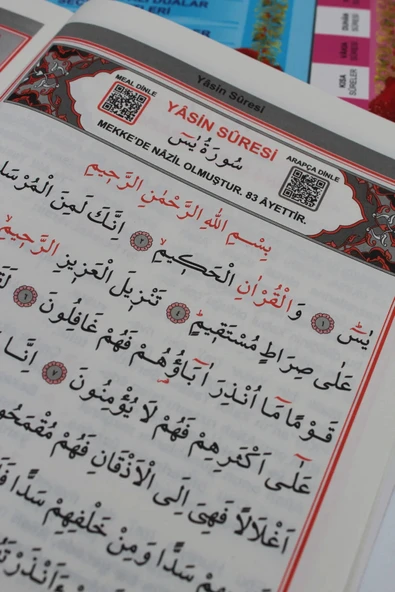 DUALAR
KISA SÛRELER
YÂSİN SÛRESİ
DUHÂN SÛRESİ
Yâsin Sûresi
MEAL DİNLE
YÂSİN SÛRESİ
ARAPÇA DİNLE
سُورَةُ يٰسٓ
MEKKE'DE NÂZİL OLMUŞTUR. 83 ÂYETTİR.
بِسْمِ اللهِ الرَّحْمٰنِ الرَّحِيمِ
يٰسٓ ۝١ وَالْقُرْاٰنِ الْحَكِيمِۙ ۝٢ اِنَّكَ لَمِنَ الْمُرْسَ
عَلٰى صِرَاطٍ مُسْتَقِيمٍۜ ۝٤ تَنْزِيلَ الْعَزِيزِ الرَّحِيمِۙ
قَوْمًا مَٓا اُنْذِرَ اٰبَٓاؤُ۬هُمْ فَهُمْ غَافِلُونَ ۝٦ لَقَ
عَلٰٓى اَكْثَرِهِمْ فَهُمْ لَا يُؤْمِنُونَ ۝٧ اِنَّا
اَغْلَالًا فَهِيَ اِلَى الْاَذْقَانِ فَهُمْ مُقْمَحُو
سَدًّا وَمِنْ خَلْفِهِمْ سَدًّا